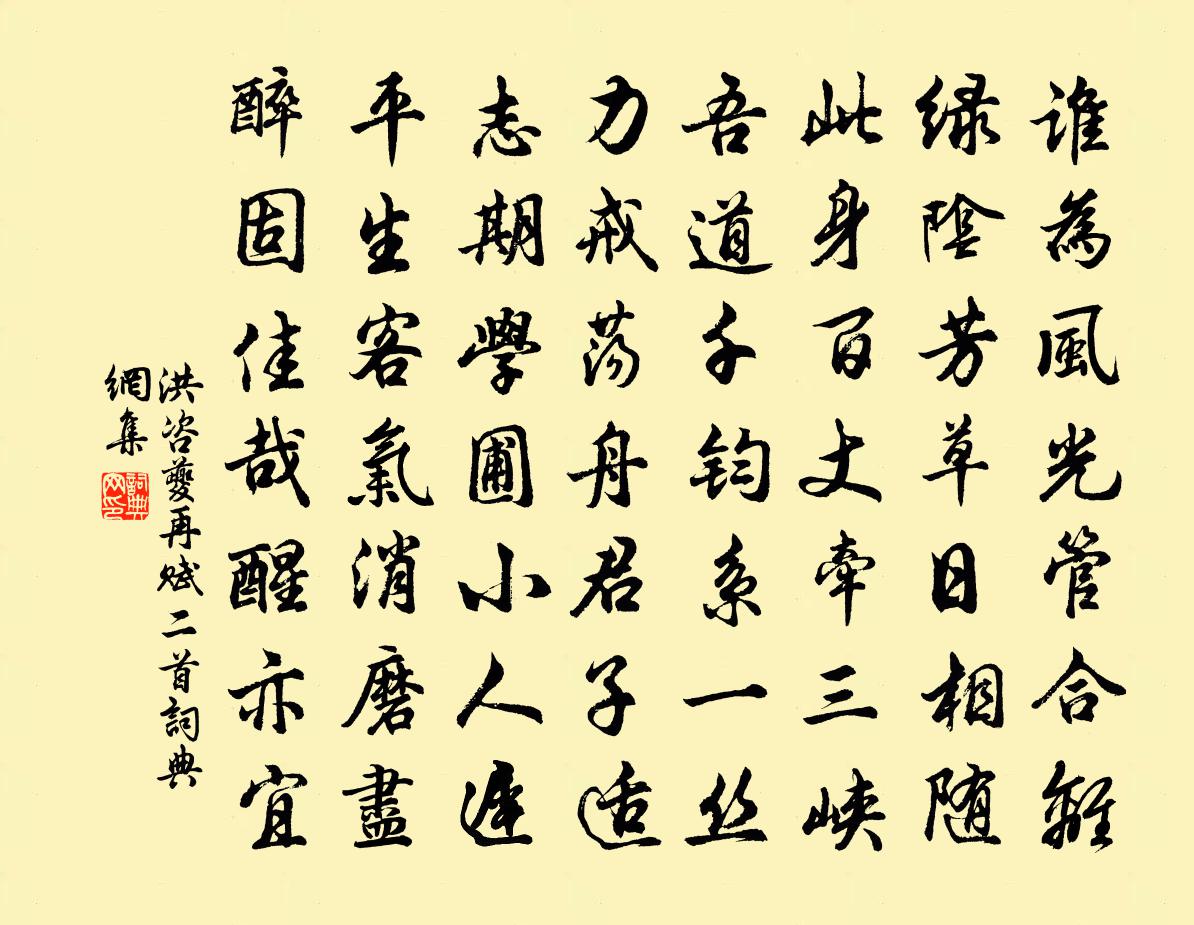 誰為風光管合離
緑陰芳草日相随
此身百丈牽三峽
吾道千鈞系一丝
力戒荡舟君子适
志期學圃小人遲
平生客氣消磨盡
醉固佳哉醒亦宜
洪咨夔再赋二首詞典
網集
詞典
网印